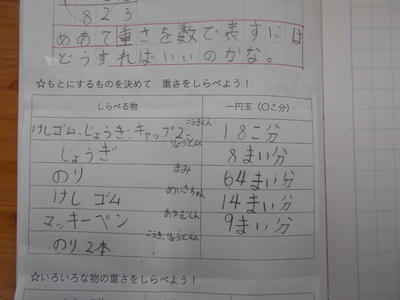 8 2 3
めあて重さを数で表すには
どうすればいいのかな。
☆もとにするものを決めて 重さをしらべよう！
しらべる物 一円玉（〇こ分）
けしゴム、じょうぎ、キャップ2コ こうきくん 18こ分
じょうぎ りょうとくん 8まい分
のり まみ 64まい分
けしゴム めいさちゃん 14まい分
マッキーペン あゆむくん 9まい分
のり2本 こうき、りょうとくん
☆いろいろな物の重さをしらべよう！